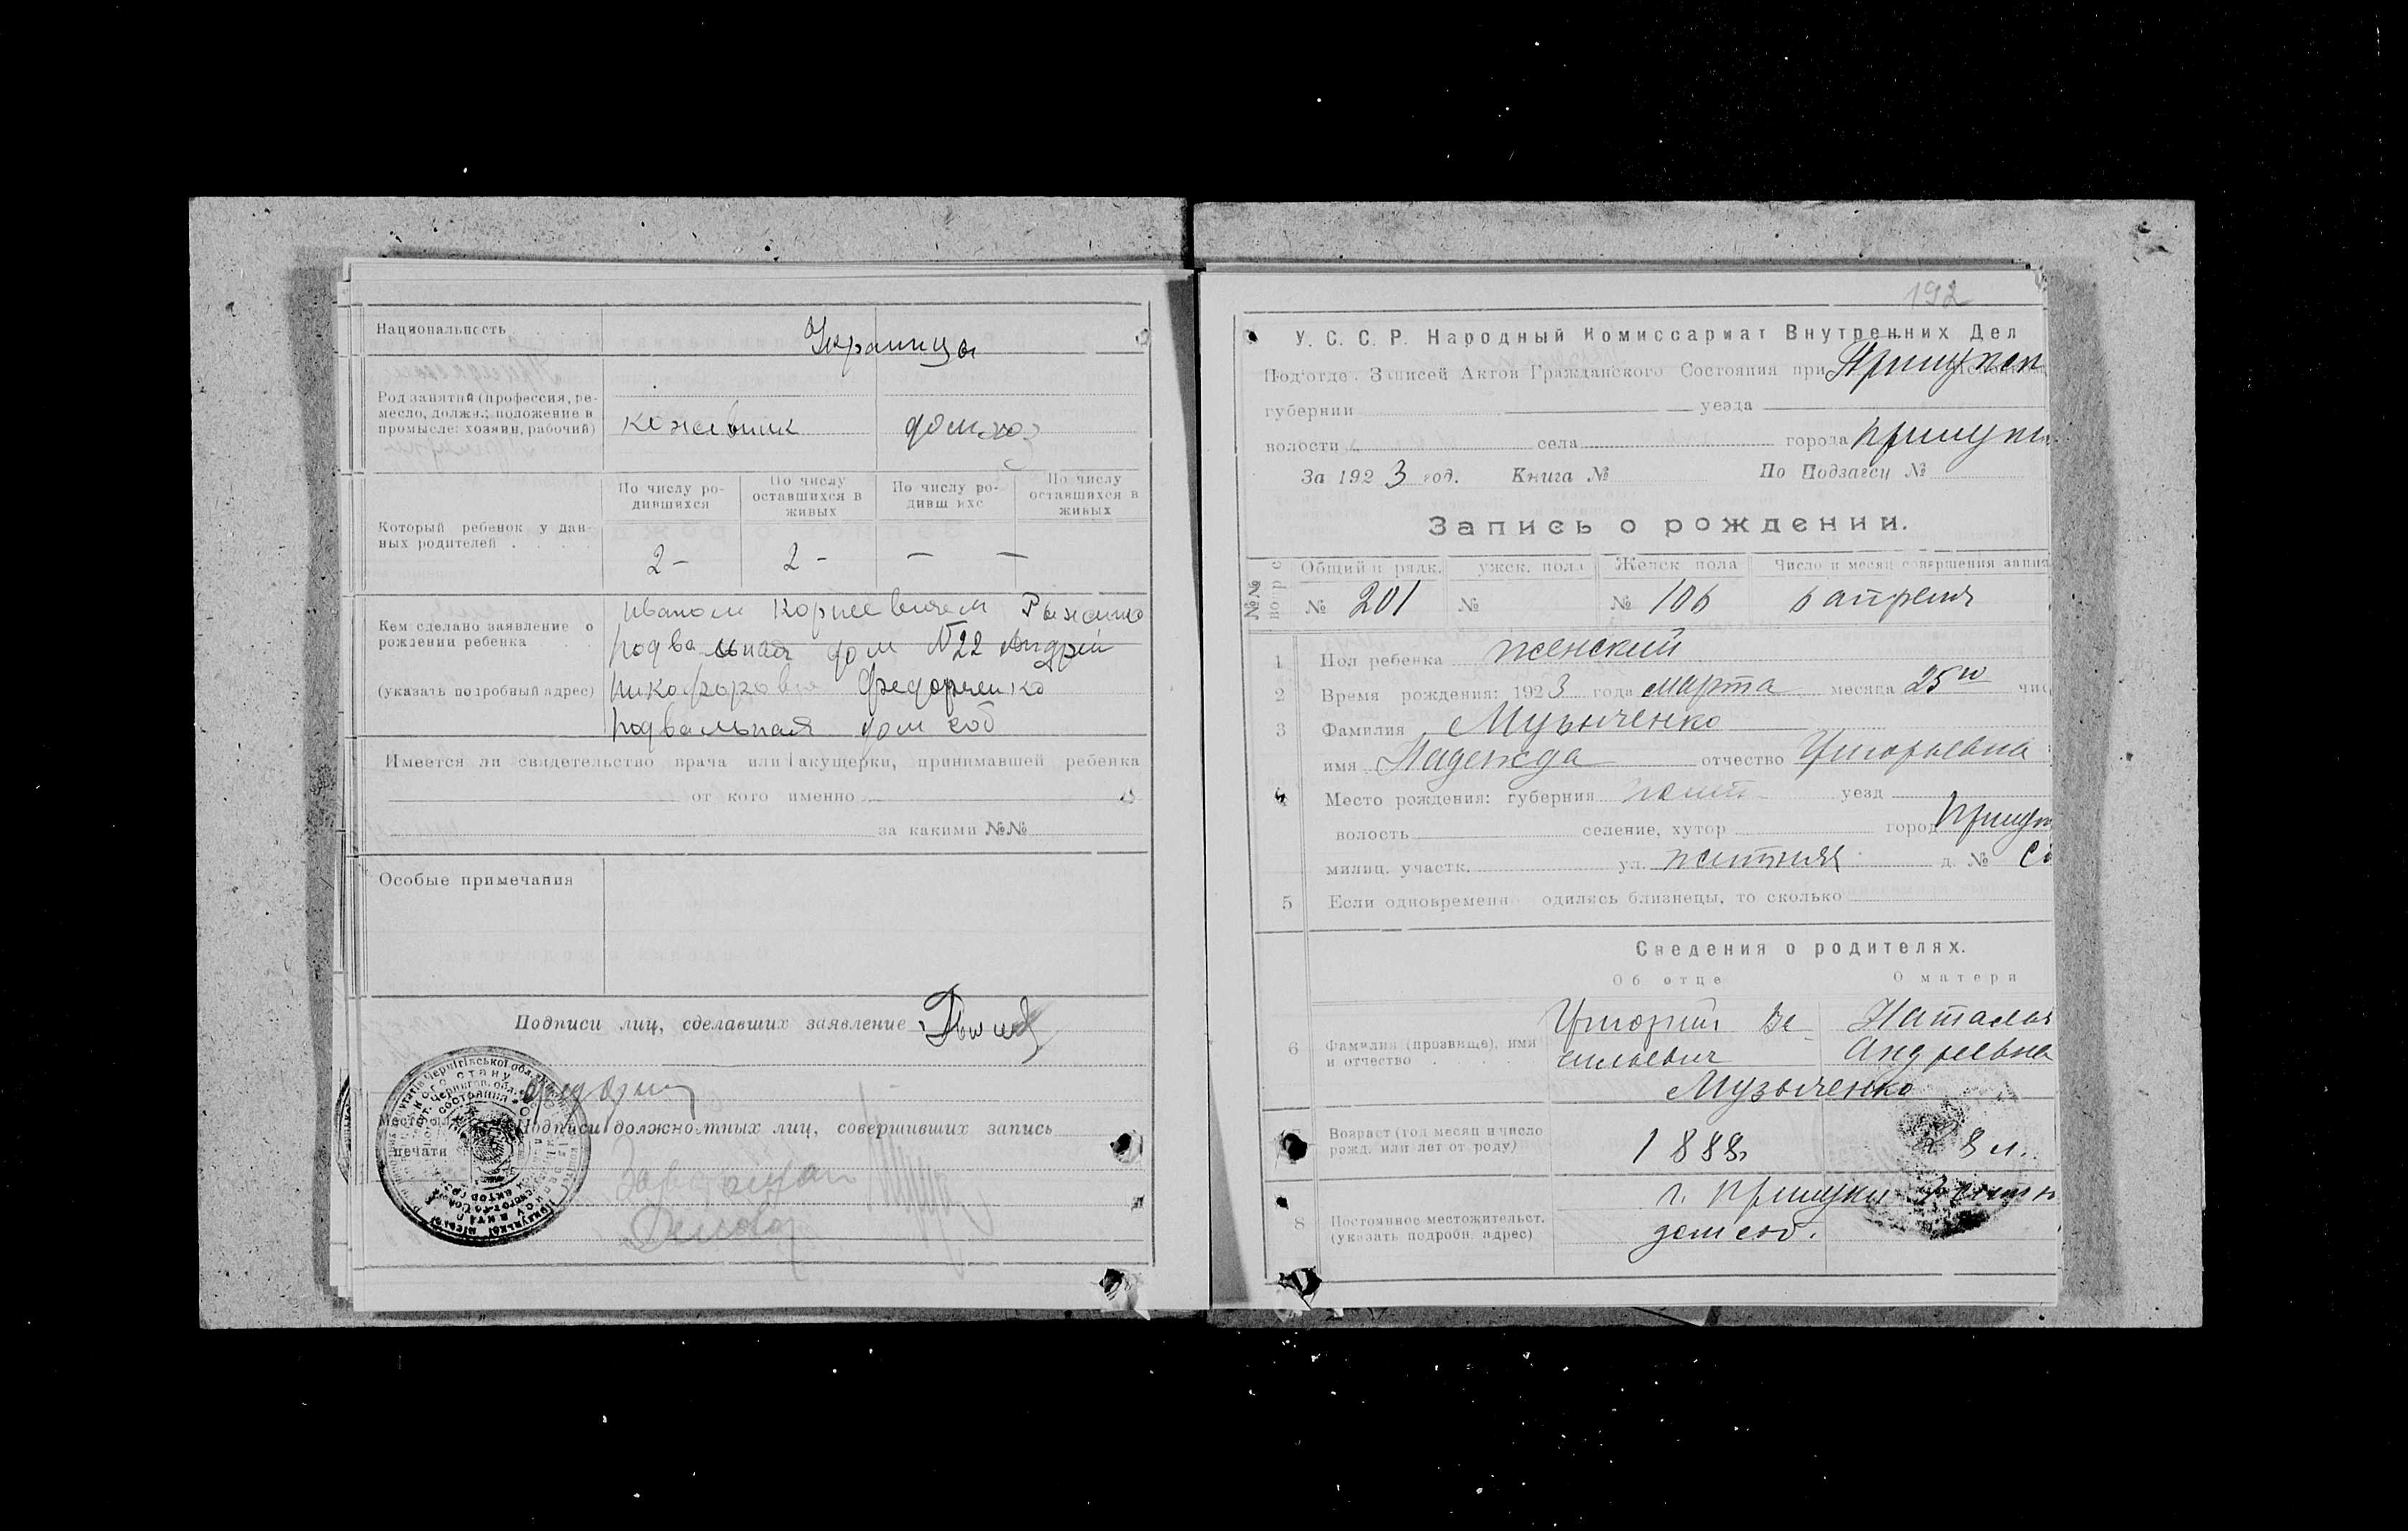 Национальность
Украинцы
Род занятий (профессия, ре-
месло, должн.; положение в
промысле: хозяин, рабочий)
кожевник
домхоз
По числу ро-
дившихся
По числу
оставшихся в
живых
По числу ро-
дивш ихс
По числу
оставшихся в
живых
Который ребенок у дан-
ных родителей
2 –
2 –
—
—
Кем сделано заявление о
рождении ребенка
(указать подробный адрес)
Иваном Корнеевичем
подвальная дом №22 Андрей
Никофоров Федорченко
подвальная дом соб
Имеется ли свидетельство врача или акушерки, принимавшей ребенка
от кого именно
за какими №№
Особые примечания
Подписи лиц, сделавших заявление
Место для
печати
Подписи должностных лиц, совершивших запись
192
У. С. С. Р. Народный Комиссариат Внутренних Дел
Под'отде. Записей Актов Гражданского Состояния при
губернии уезда
волости села города
За 1923 год. Книга № По Подзагсу №
Запись о рождении.
Общий п рядк.
ужск. пола
Женск пола
Число и месяц совершения запис
№ 201
№
№ 106
6 апреля
1 Пол ребенка женский
2 Время рождения: 1923 года марта месяца 25го чис
3 Фамилия Музыченко
имя Надежда отчество Григорьевна
4 Место рождения: губерния уезд
волость селение, хутор город
милиц. участк. ул. житняя д. №
5 Если одновременно одились близнецы, то сколько
Сведения о родителях.
Об отце
О матери
6 Фамилия (прозвище), имя
и отчество
Григорий Ва
сильевич
Наталья
Андреевна
Музыченко
7 Возраст (год месяц и число
рожд. или лет от роду)
1888г
28 л.
8 Постоянное местожительст.
(указать подробн. адрес)
г. Прилуки
дом соб.